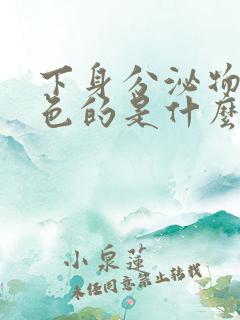 下身分泌物
色的是什麼
小泉蓮
未经同意禁止转载